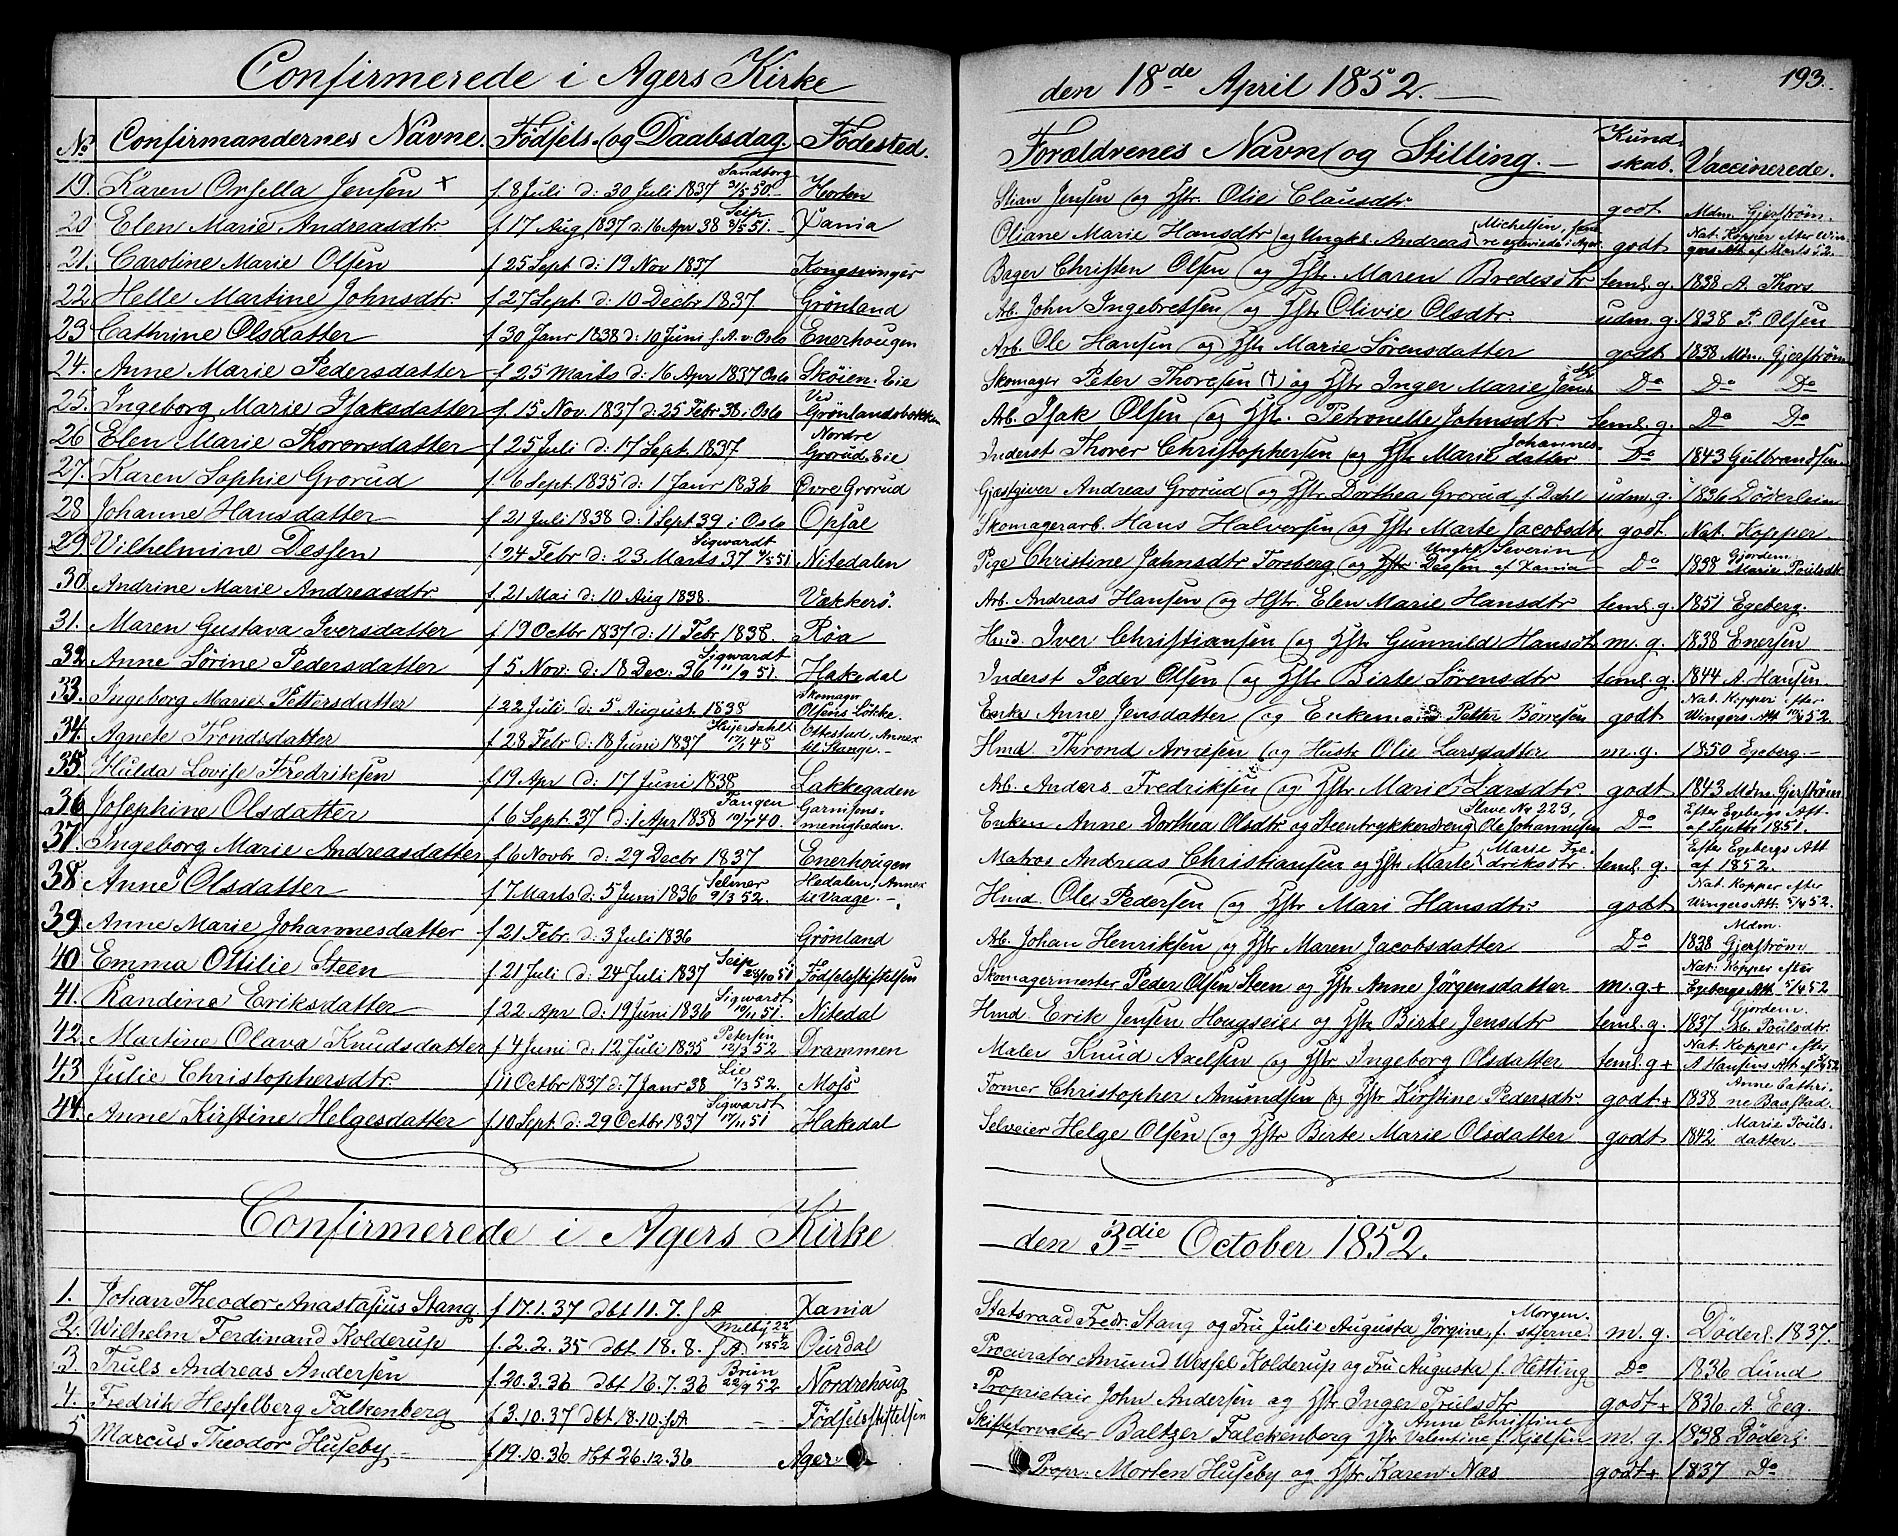 Confirmerede i Agers Kirke den 18de April 1852. 193.
No Confirmandernes Navne. Fødsels- og Daabsdag. Fødested. Forældrenes Navn og Stilling. Kundskab. Vaccinerede.
19. Karen Orsella Jensen + f. 8 Juli d: 30 Juli 1837 Sandberg 31/5 50 Horten Stian Jensen og Hstr. Olie Clausdtr. godt Mdm. Gjerstrøm
20 Elen Marie Andreasdtr f 17 Aug 1837 d: 16 Apr 38 Seip 31/5 51. Xania Oliane Marie Hansdtr og Ungkl Andreas Michelsen, godt Nat. Kopper efter Wingers Att. af Marts 52.
21. Caroline Marie Olsen f 25 Sept d: 19 Nov 1837 Kongsvinger Bager Christen Olsen og Hstr. Maren Bredesdtr teml. g. 1838 A. Thors
22 Helle Martine Johnsdtr f 27 Sept. d: 10 Decbr 1837 Grønland Arb. John Ingebretsen og Hstr Olivie Olsdtr. udm. g. 1838 P. Olsen
23 Cathrine Olsdatter f 30 Janr 1838 d: 10 Juni f. A. v: Oslo Enerhougen Arb. Ole Hansen og Hstr Marie Sørensdatter godt 1838 Mdm. Gjerstrøm
24. Anne Marie Pedersdatter f 25 Marts d: 16 Apr 1837 Oslo Skøien. Eie Skomager Peter Thoresen (†) og Hstr Inger Marie Jensdtr Do Do Do
25. Ingeborg Marie Isaksdatter f. 15 Nov. 1837 d: 25 Febr 38 i Oslo Ved Grønlandsbakken Arb. Isak Olsen og Hstr. Petronelle Johnsdtr teml. g. Do Do
26 Elen Marie Thorersdatter f 25 Juli d: 17 Sept. 1837 Nordre Grorud. Eie Inderst Thorer Christophersen og Hstr Marie Johannesdatter Do 1843 Gulbrandsen
27. Karen Sophie Grorud f 6 Sept. 1835 d: 1 Janr 1836 Øvre Grorud Gjæstgiver Andreas Grorud og Hstr Dorthea Grorud f. Dahl udm. g. 1836 Døderlein
28 Johanne Hansdatter f 21 Juli 1838 d: 1 Sept 39 i Oslo Opsal Skomagerarb. Hans Halversen og Hstr Marte Jacobsdtr godt. Nat. Kopper
29. Vilhelmine Dessen f 24 Febr d: 23 Marts 37 Sigwardt 4/5 51 Nitedalen Pige Christine Jahnsdtr Forsberg og Ungkl Severin Dessen af Xania Do 1838 Gjordem. Marie Poulsdtr
30 Andrine Marie Andreasdtr f. 21 Mai d: 10 Aug 1838. Vækkerø. Arb. Andreas Hansen og Hstr. Elen Marie Hansdtr teml. g. 1851 Egeberg.
31. Maren Gustava Iversdatter f 19 Octbr 1837 d: 11 Febr 1838. Røa Hmd. Iver Christiansen og Hstr Gunnild Hansdtr m. g. 1838 Enersen
32 Anne Sørine Pedersdatter f 5 Nov. d: 18 Dec: 36 Sigwardt 11/9 51. Hakedal Inderst Peder Olsen og Hstr Birte Sørensdtr teml. g. 1844 A. Hansen
33. Ingeborg Marie Pettersdatter f 22 Juli d: 5 August 1838 Skomager Olsens Løkke. Enke Anne Jensdatter og Enkemand Petter Børresen godt Nat. Kopper efter Wingers Att. 10/4 52.
34. Agnete Trondsdatter f 28 Febr d: 18 Juni 1837 17/1 48 Ottestad, Annex til Stange. Hmd. Thrond Arnesen og Hustr. Olie Larsdatter m. g. 1850 Egeberg.
35 Hulda Lovise Fredriksen f 19 Apr d: 17 Juni 1838 Lakkegaden Arb. Anders Fredriksen og Hstr Marie Larsdtr. godt 1843 Mdm. Gjerstrøm
36 Josephine Olsdatter f 6 Sept. 37 d: 1 Apr 1838 Tangen 10/7 40. Garnisonsmenigheden. Enken Anne Dorthea Olsdtr og Steentrykkerdreng Slave No 223, Ole Johannesen Do Efter Egebergs Att. af Septbr 1851.
37. Ingeborg Marie Andreasdatter f 6 Novbr d: 29 Decbr 1837 Enerhougen Matros Andreas Christiansen og Hstr Marte Marie Fredriksdtr teml. g. Efter Egebergs Att af 1852.
38 Anne Olsdatter f 7 Marts d: 5 Juni 1836 Selmer 9/3 52. Hedalen, Annex til Vaage. Hmd. Ole Pedersen og Hstr Mari Hansdtr. godt Nat. Kopper efter Wingers Att. 5/4 52
39 Anne Marie Johannesdatter f 21 Febr. d. 3 Juli 1836 Grønland Arb. Johan Henriksen og Hstr Maren Jacobsdatter Do 1838 Mdm. Gjerstrøm
40 Emma Ottilie Steen f. 21 Juli d: 24 Juli 1837 Seip 28/10 51 Fødselsstiftelsen Skomagermester Peder Olsen Steen og Hstr Anne Jørgensdatter m. g + Nat: Kopper efter Egebergs Att 5/4 52
41. Randine Eriksdatter f 22 Apr d: 19 Juni 1836 Sigwardt 10/11 51. Nitedal Hmd. Erik Jensen Hougseie og Hstr Birte Jensdtr teml. g. 1837 Gjordem. Poulsdtr.
42. Martine Olava Knudsdatter f 4 Juni d: 12 Juli 1835 Petersen 12/3 52 Drammen Maler Knud Axelsen og Hstr Ingeborg Olsdatter teml. g + Nat. Kopper efter A Hansens Att af 5/4 52
43 Julie Christophersdtr. f 11 Octbr 1837 d: 7 Janr 38 Lie 1/3 52. Moss Former Christopher Amundsen og Hstr Kirstine Pedersdtr godt + 1838 Anne Cathrine Baastad.
44 Anne Kirstine Helgesdatter f. 10 Sept. d: 29 Octbr 1837 Sigwardt 17/11 51 Hakedal Selveier Helge Olsen og Hstr Birte Marie Olsdatter godt 1842 Marie Poulsdatter.
Confirmerede i Agers Kirke den 3die October 1852.
1. Johan Theodor Anastasius Stang f 17. 1. 37 dbt 11. 7. f A Xania Statsraad Fredr. Stang og Fru Julie Augusta Jørgine, f. Morgenstjerne. m. g. Døderl. 1837.
2. Wilhelm Ferdinand Kolderup f. 2. 2. 35 dbt 18. 8. f A. Melby 22/4 1852 Ourdal Procurator Amund Wessel Kolderup og Fru Augusta f. Hetting Do 1836 Lund
3. Truls Andreas Andersen f. 20. 3. 36 dbt 16. 7. 36 Brun 22/9 52 Nordrehoug Proprietair John Andersen og Hstr. Inger Trulsdtr godt + 1836 A. Eeg.
4. Fredrik Hesselberg Falkenberg f. 3. 10. 37 dbt 18. 10. f A Fødselsstiftelsen Skifteforvalter Baltzer Falckenberg Hstr Anne Christine Valentine f. Gjelsen m. g. 1838 Døderl.
5. Marcus Theodor Huseby f 19. 10. 36 dbt 26. 12. 36 Ager Propr: Morten Huseby og Hstr Karen Næs godt + 1837 Do